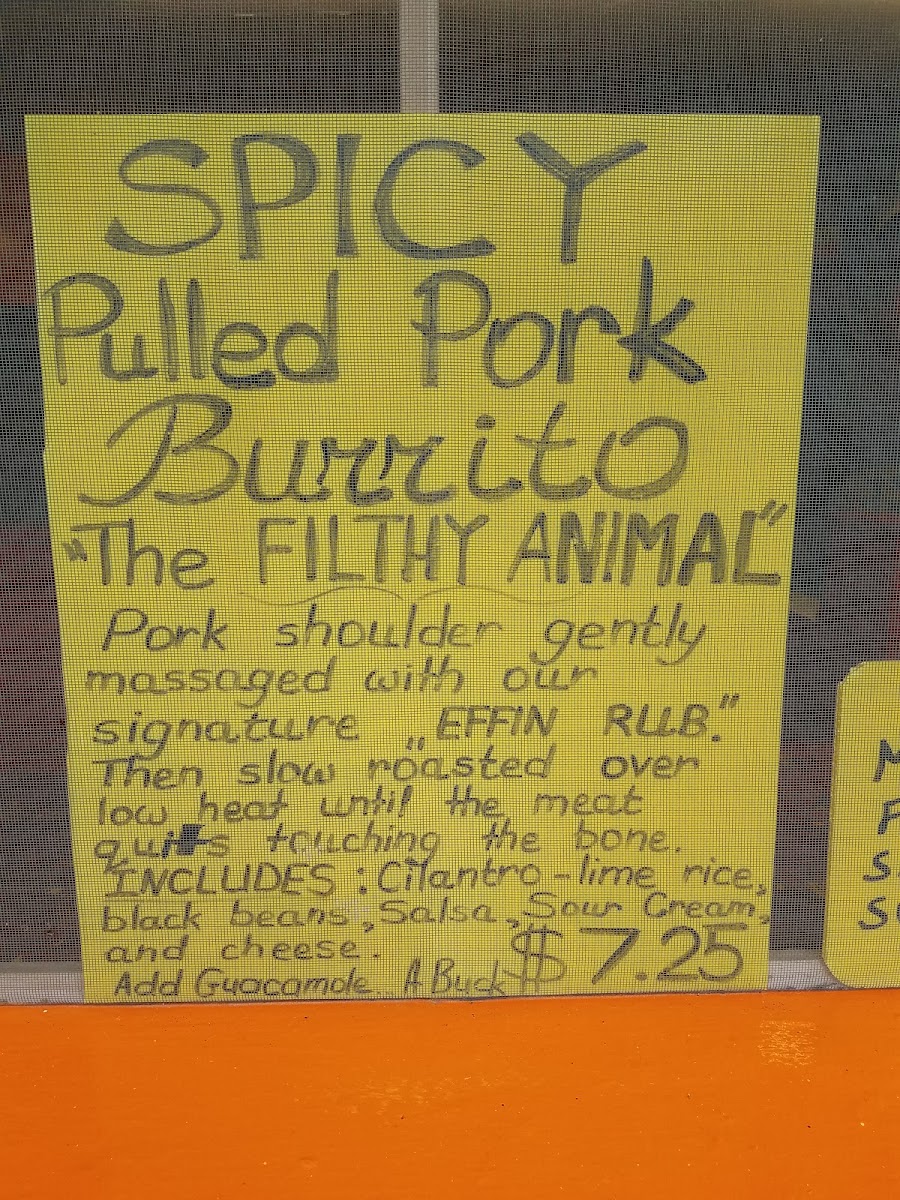 SPICY
Pulled Pork
Burrito
"The FILTHY ANIMAL"
Pork shoulder gently
massaged with our
signature „EFFIN RUB."
Then slow roasted over
low heat until the meat
quits touching the bone.
INCLUDES: Cilantro-lime rice,
black beans, Salsa, Sour Cream,
and cheese.
Add Guacamole A Buck $7.25